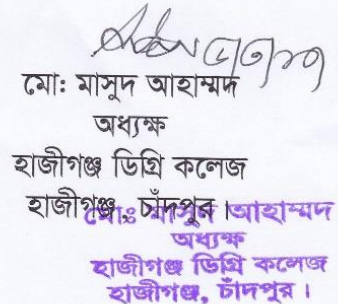 মো: মাসুদ আহাম্মদ
অধ্যক্ষ
হাজীগঞ্জ ডিগ্রি কলেজ
হাজীগঞ্জ, চাঁদপুর।
মোঃ মাসুদ আহাম্মদ
অধ্যক্ষ
হাজীগঞ্জ ডিগ্রি কলেজ
হাজীগঞ্জ, চাঁদপুর।